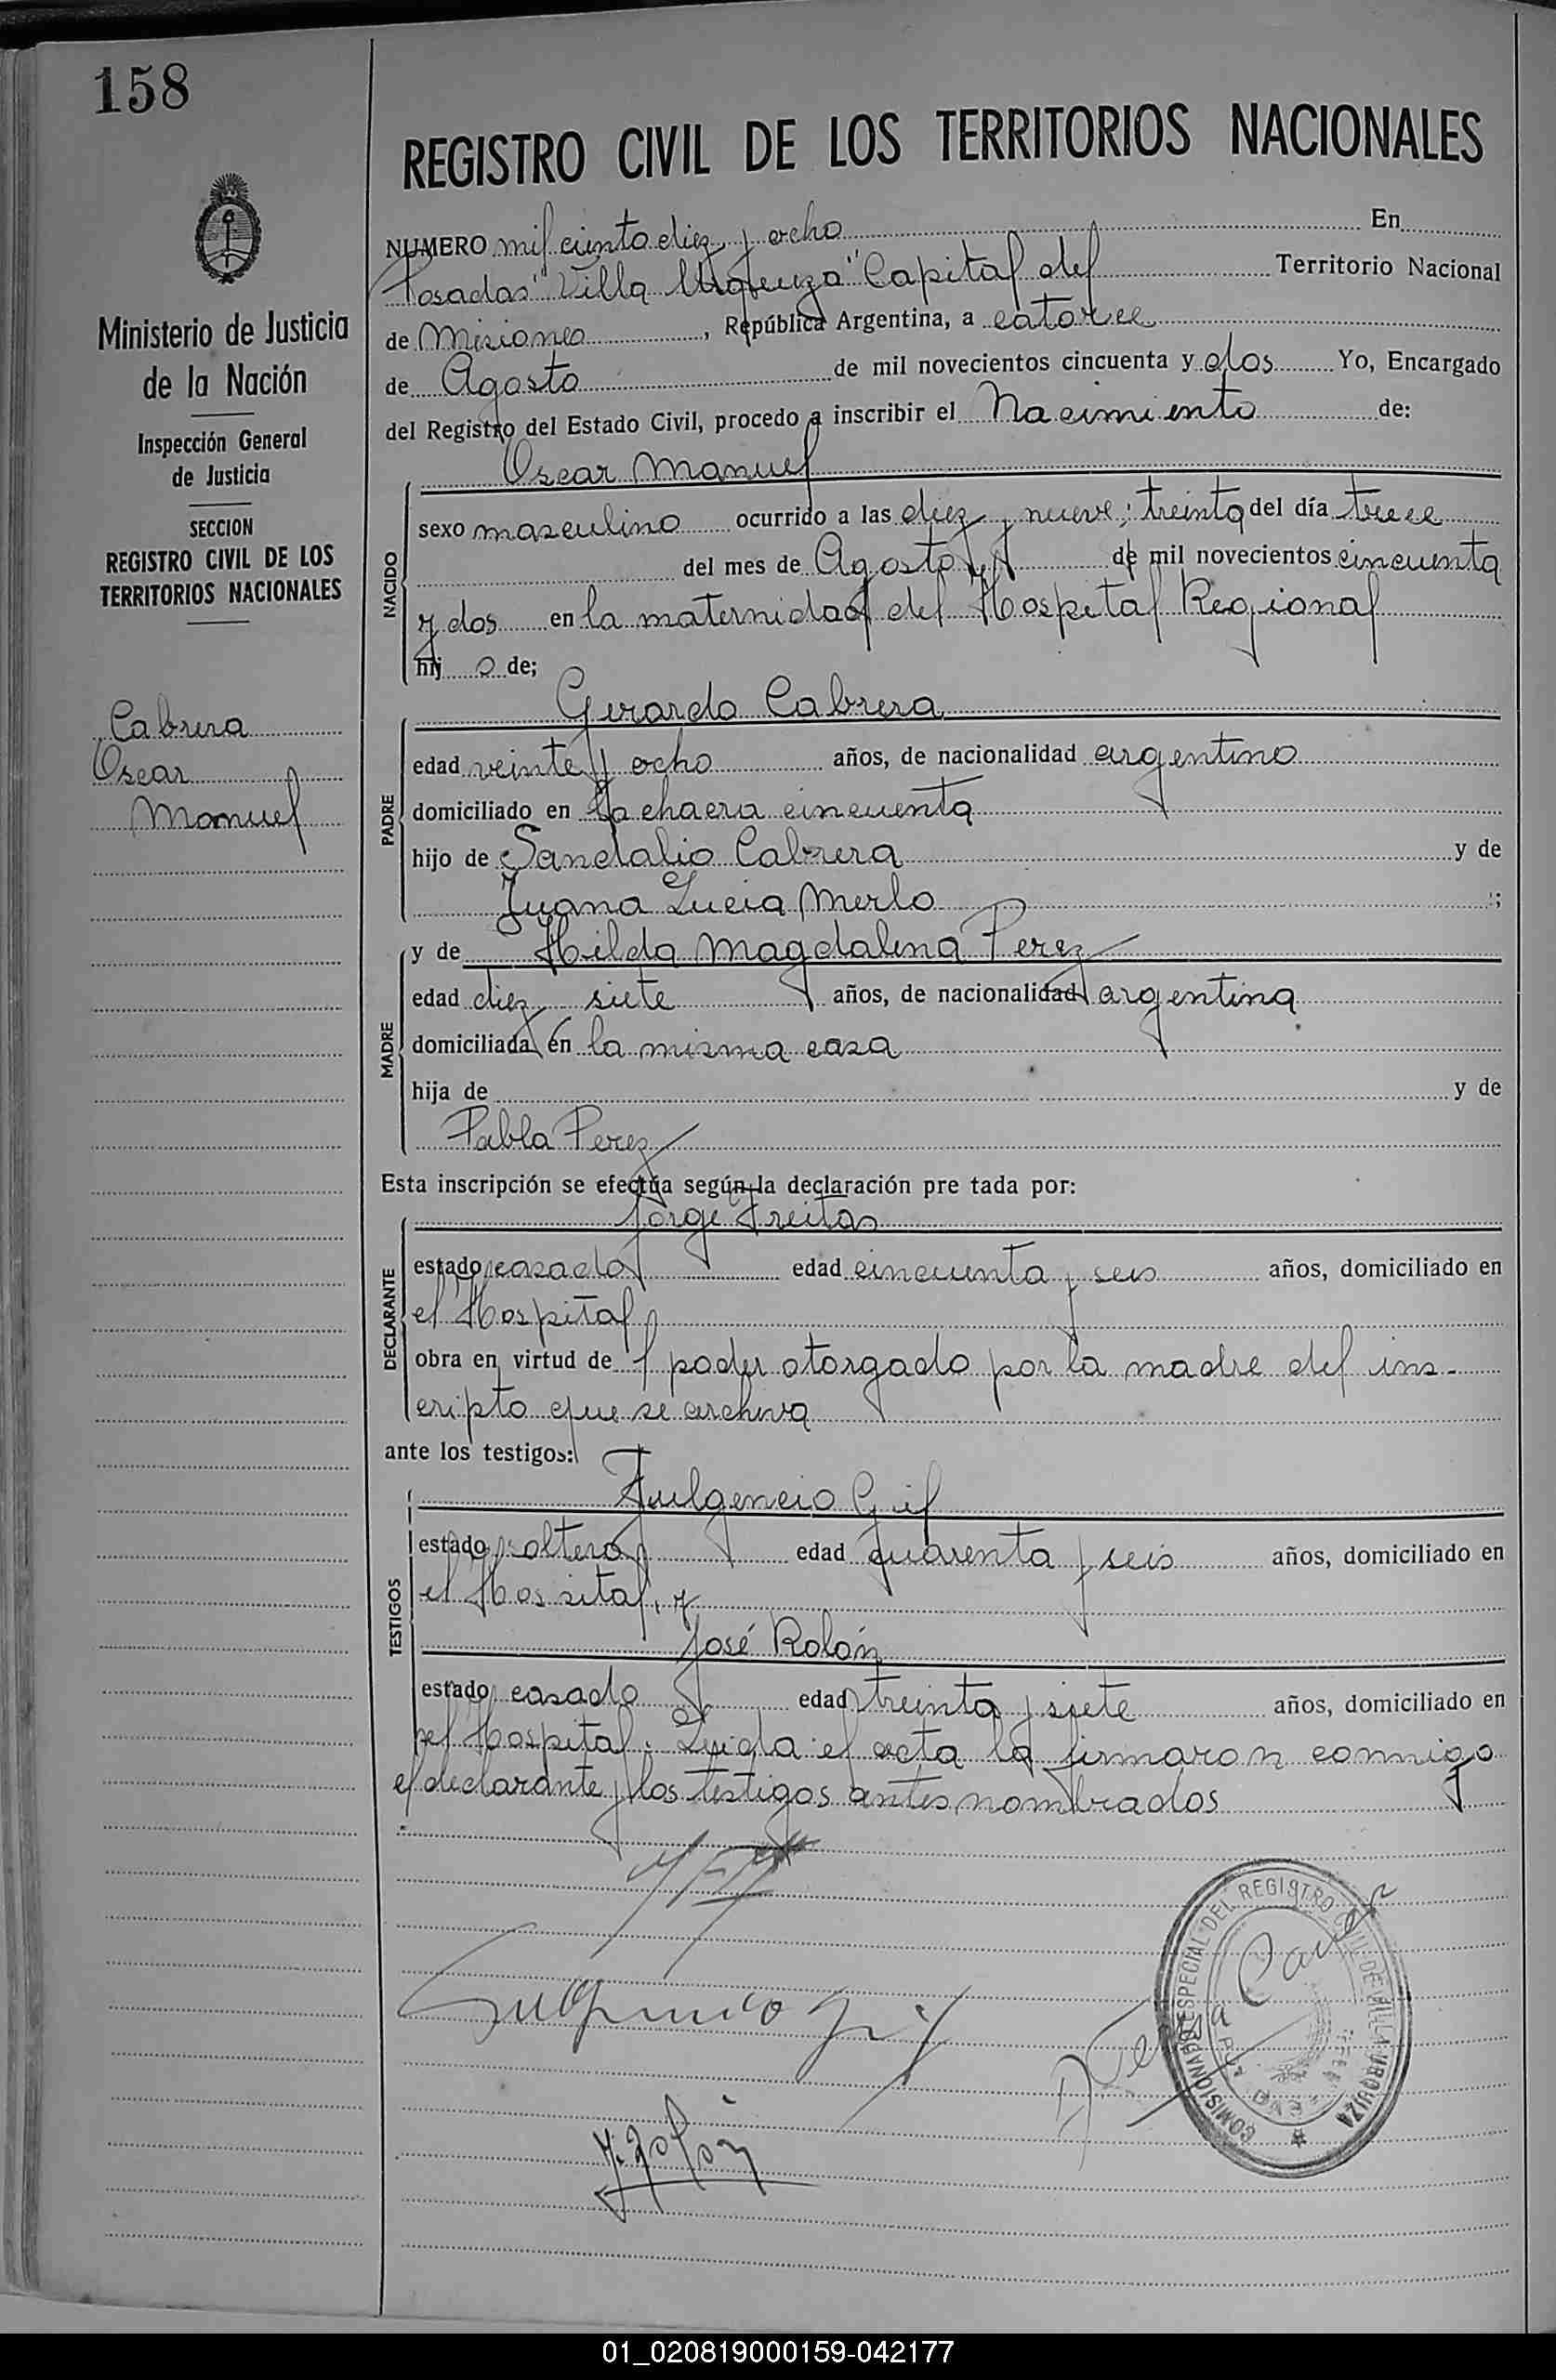 158
Ministerio de Justicia
de la Nación
Inspección General
de Justicia
SECCION
REGISTRO CIVIL DE LOS
TERRITORIOS NACIONALES
Cabrera
Oscar
Manuel
REGISTRO CIVIL DE LOS TERRITORIOS NACIONALES
NUMERO mil ciento diez y ocho En
Posadas "Villa Urquiza" Capital del Territorio Nacional
de Misiones, República Argentina, a catorce
de Agosto de mil novecientos cincuenta y dos Yo, Encargado
del Registro del Estado Civil, procedo a inscribir el Nacimiento de:
Oscar Manuel
NACIDO
sexo masculino ocurrido a las diez y nueve; treinta del día trece
del mes de Agosto de mil novecientos cincuenta
y dos en la maternidad del Hospital Regional
hijo de;
Gerardo Cabrera
PADRE
edad veinte y ocho años, de nacionalidad argentino
domiciliado en la chacra cincuenta
hijo de Sandalio Cabrera y de
Juana Lucia Merlo ;
MADRE
y de Hilda Magdalena Perez
edad diez y siete años, de nacionalidad argentina
domiciliada en la misma casa
hija de y de
Pabla Perez
Esta inscripción se efectúa según la declaración pre tada por:
Jorge Freitas
DECLARANTE
estado casado edad cincuenta y seis años, domiciliado en
el Hospital
obra en virtud de l poder otorgado por la madre del ins-
cripto que se archiva
ante los testigos:
Fulgencio Gil
TESTIGOS
estado soltero edad quarenta y seis años, domiciliado en
el Hos sital, y
José Rolón
estado casado edad treinta y siete años, domiciliado en
el Hospital. Leida el acta la firmaron conmigo
el declarante y los testigos antes nombrados
Fulgencio Gil
J. Rolón
COMISIONADO ESPECIAL DEL REGISTRO CIVIL DE VILLA URQUIZA
01_020819000159-042177